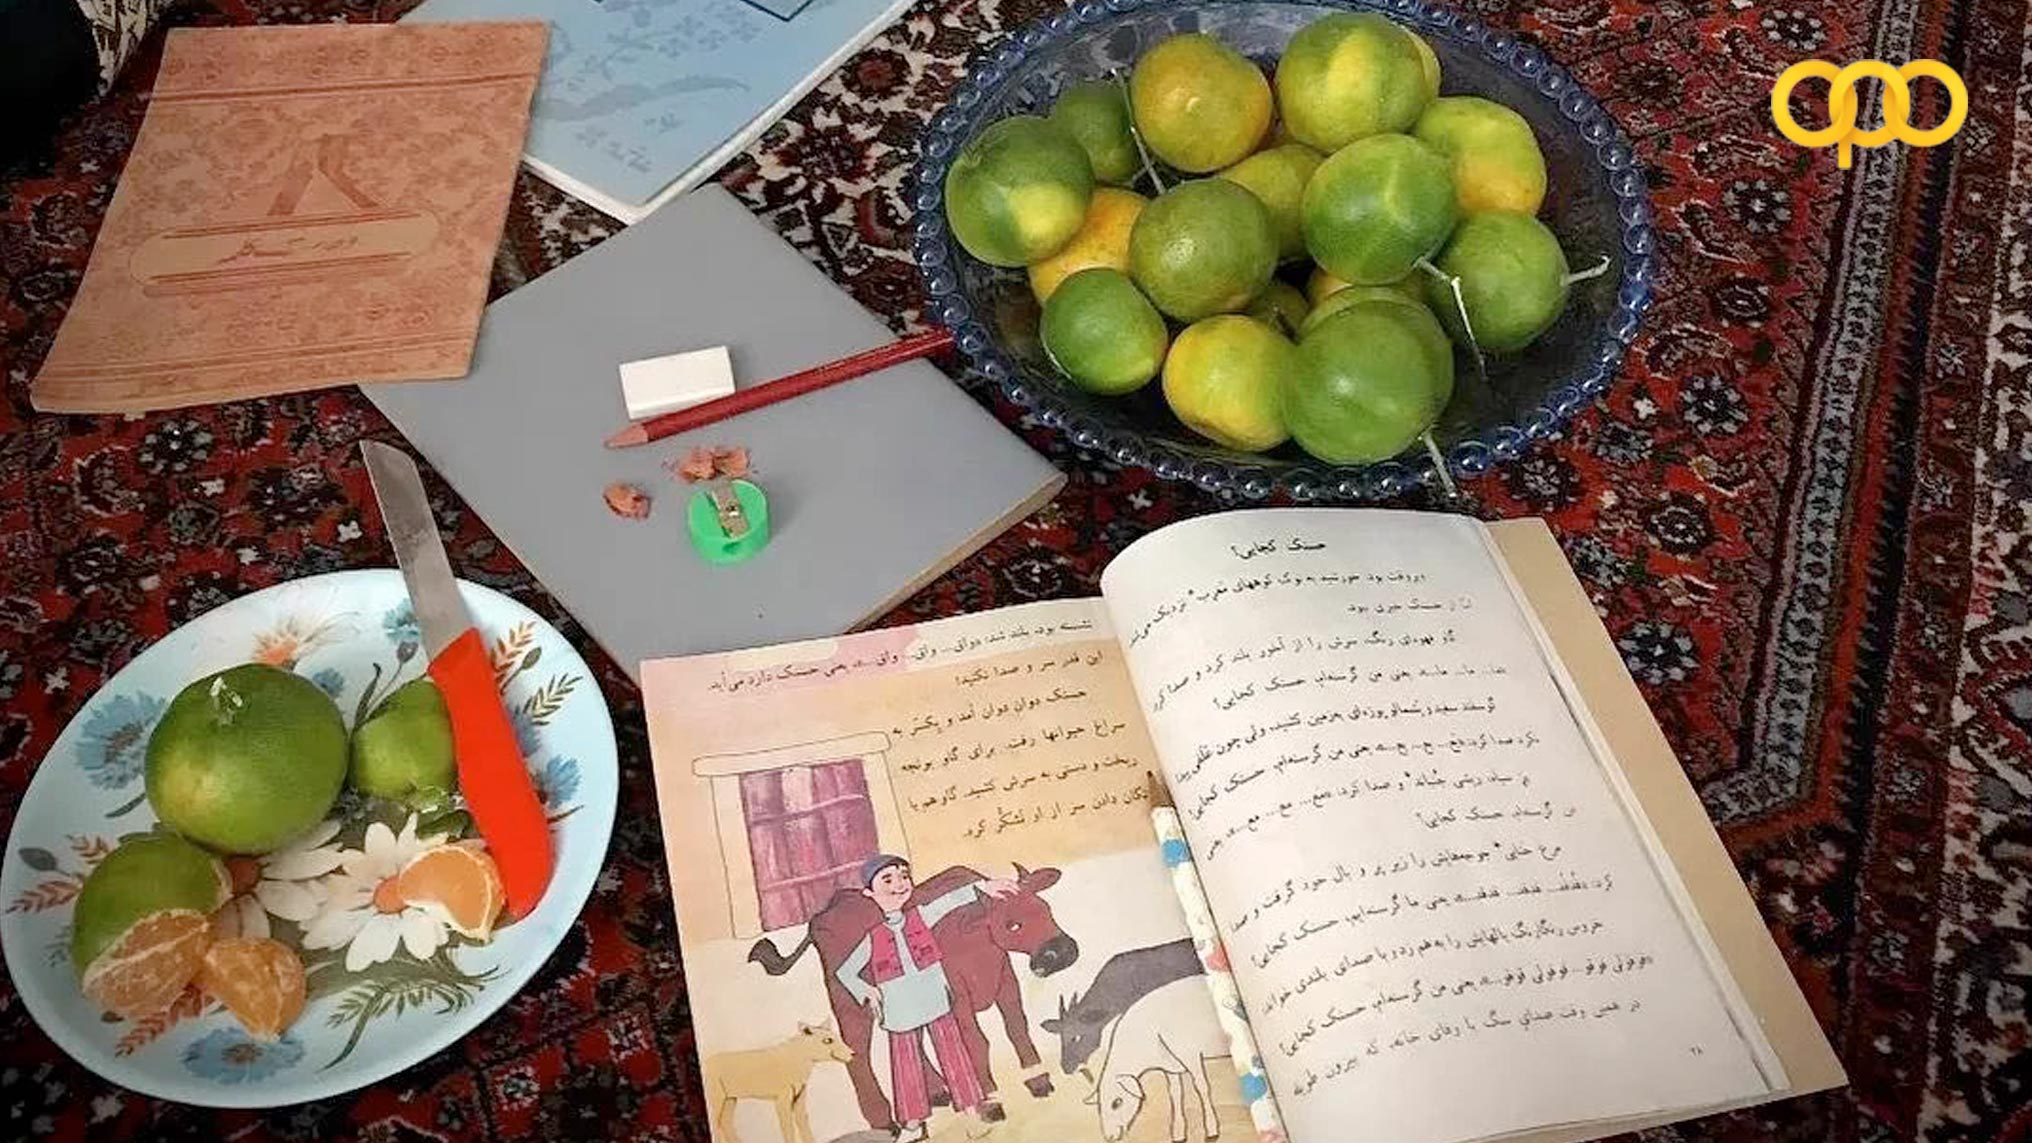 حسنک کجایی؟
دیروقت بود. خورشید به نوک کوههای مغرب* نزدیک می‌شد
از حسنک خبری نبود.
گاو قهوه‌ای رنگ، سرش را از آخور بلند کرد و صدا کرد
ما... ما... یعنی من گرسنه‌ام، حسنک کجایی؟
گوسفند سفید و پشمالو پوزه‌ای به زمین کشید، ولی چون علفی پیدا
نکرد صدا کرد: بع... بع... یعنی من گرسنه‌ام، حسنک کجایی؟
بز سیاه، ریشی جُنباند* و صدا کرد: مع... مع... مع... یعنی
من گرسنه‌ام، حسنک کجایی؟
مرغ حنایی* جوجه‌هایش را زیر پر و بال خود گرفت و صدا
کرد: قُدقُد... قدقد... قدقد... یعنی ما گرسنه‌ایم، حسنک کجایی؟
خروس رنگارنگ بالهایش را به هم زد و با صدای بلندی خواند:
قوقولی قوقو... قوقولی قوقو... یعنی من گرسنه‌ام، حسنک کجایی؟
در همین وقت صدای سگ با وفای خانه، که بیرون طویله
۲۸
نشسته بود، بلند شد: واق... واق... واق... یعنی حسنک دارد می‌آید.
این قدر سر و صدا نکنید!
حسنک دوان دوان آمد و یکسر به
سراغ حیوانها رفت. برای گاو یونجه
ریخت و دستی به سرش کشید. گاو هم با
تکان دادن سر از او تشکُّر کرد.